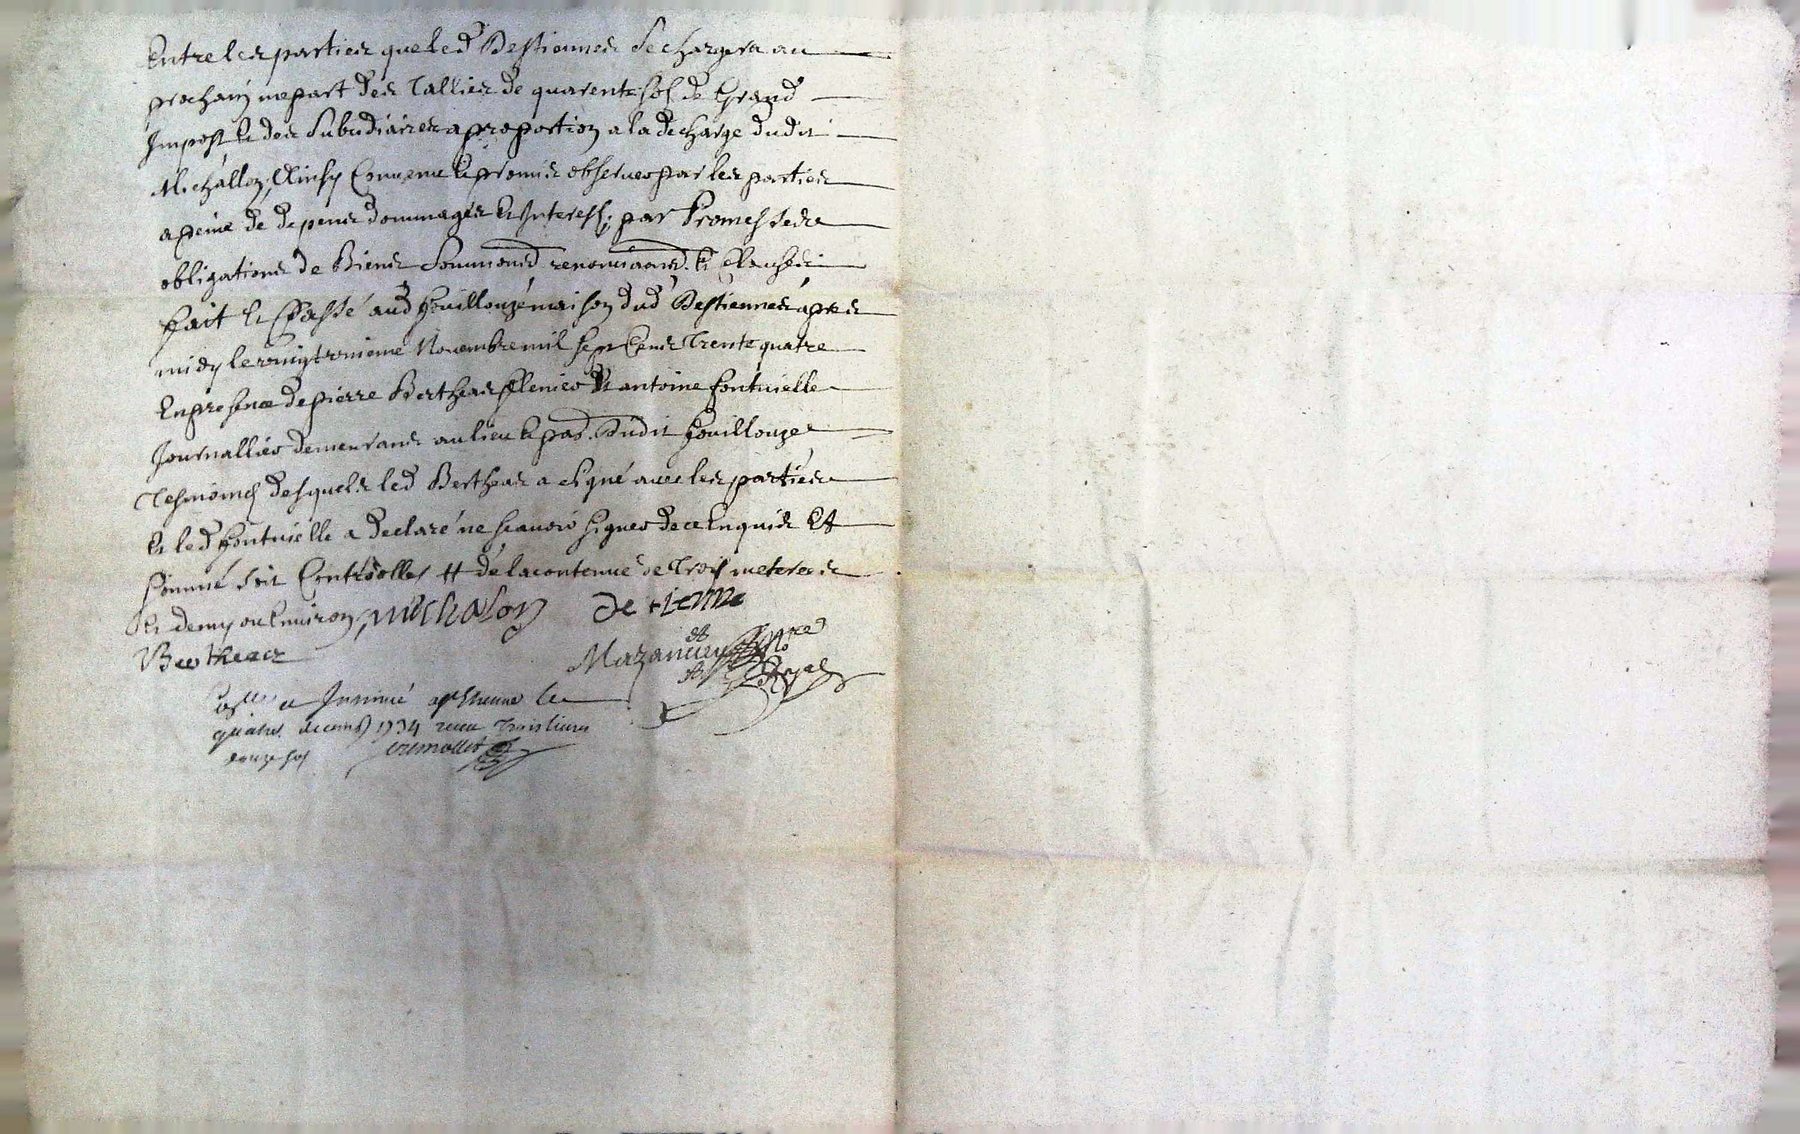 Entre les parties que led Destiennes se chargera au
prochain mepart des Tallies de quarente sols de Grand
Impost et des subsidiaires a proportion a la decharge dudit
Michallon, Ainsy Convenu et promis observer par les parties
a peine de depens dommages et Interest; par Promesse de
obligations de Biens soummond renonciaond. et clauses
fait et Passé aud fouillouze maison dud Destiennes apres
midy le vingtroisieme Novembre mil sept Cens Trente quatre
En presence de pierre Bertheas et antoine fontvielle
Journallier demeurans au lieu et par. dudit fouillouze
Tesmoins desquels led Bertheas a signé avec les parties
et led fontvielle a declaré ne scavoir signer de ce Enquis Et
sommé soit Controollés # de la contenue de Trois meterees
et demy ou Environ, michalon de tienne
Bertheas Mazancieu
et Insinué a st Etienne le
quatre decemb 1734 receu Trois livres
douze sols